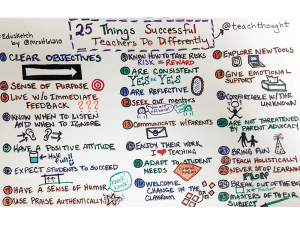 EduSketch
by @mrsHowell
25 Things Successful
Teachers Do Differently
@teachthought
CLEAR OBJECTIVES
SENSE OF PURPOSE
LIVE W/O IMMEDIATE
FEEDBACK ???
KNOW WHEN TO LISTEN
AND WHEN TO IGNORE
HAVE A POSITIVE ATTITUDE
EXPECT STUDENTS TO SUCCEED
HAVE A SENSE OF HUMOR
USE PRAISE AUTHENTICALLY
KNOW HOW TO TAKE RISKS
RISK = REWARD
ARE CONSISTENT
YES = YES
ARE REFLECTIVE
SEEK OUT mentors
COMMUNICATE W/PARENTS
ENJOY THEIR WORK
I TEACHING
ADAPT TO STUDENT
NEEDS
WELCOME
CHANGE IN THE
CLASSROOM
EXPLORE NEW TOOLS
GIVE EMOTIONAL
SUPPORT
COMFORTABLE W/THE
UNKNOWN
ARE NOT THREATENED
BY PARENT ADVOCACY
BRING FUN
TEACH HOLISTICALLY
NEVER STOP LEARNING
BREAK OUT OF THE BOX
MASTERS OF
SUBJECT